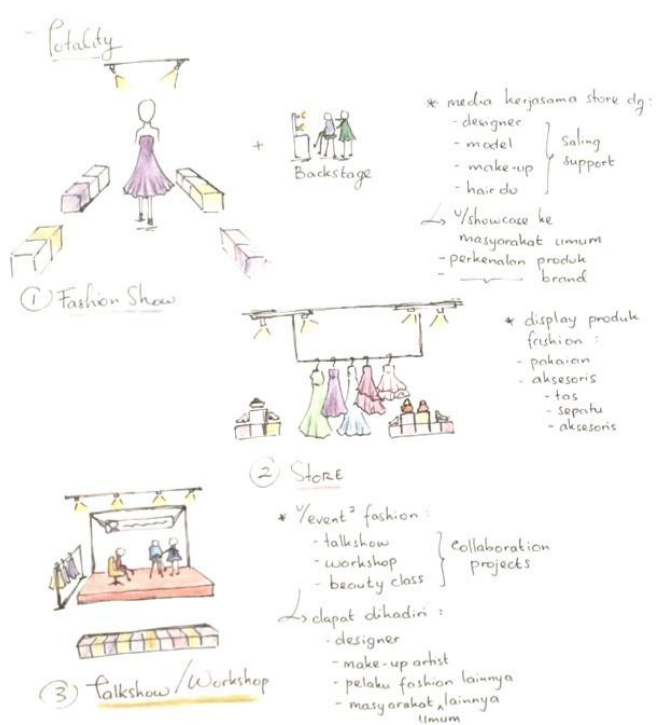 - Totality
+
Backstage
① Fashion Show
* media kerjasama store dg:
- designer
- model
- make-up
- hair do
saling
support
→ u/showcase ke
masyarakat umum
- perkenalan produk
- brand
② STORE
* display produk
fashion :
- pakaian
- aksesoris
- tas
- sepatu
- aksesoris
③ Talkshow/Workshop
* u/event² fashion :
- talkshow
- workshop
- beauty class
Collaboration
projects
→ dapat dihadiri :
- designer
- make-up artist
- pelaku fashion lainnya
- masyarakat ^ lainnya
umum